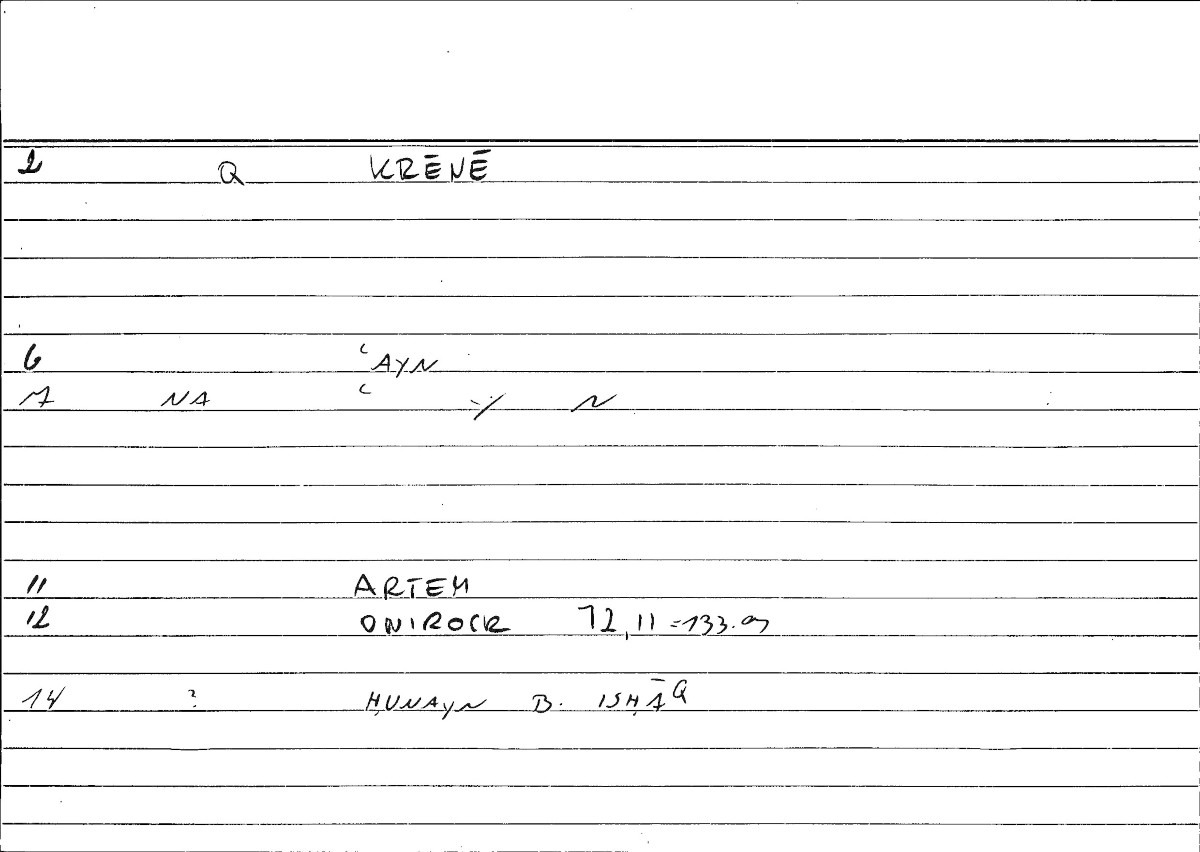 2 Q KRĒNĒ
6 ʿAYN
7 NA ʿ -y N
11 ARTEM
12 ONIROCR 12,11 =133.
14 ? ḤUNAYN B. ISḤĀQ